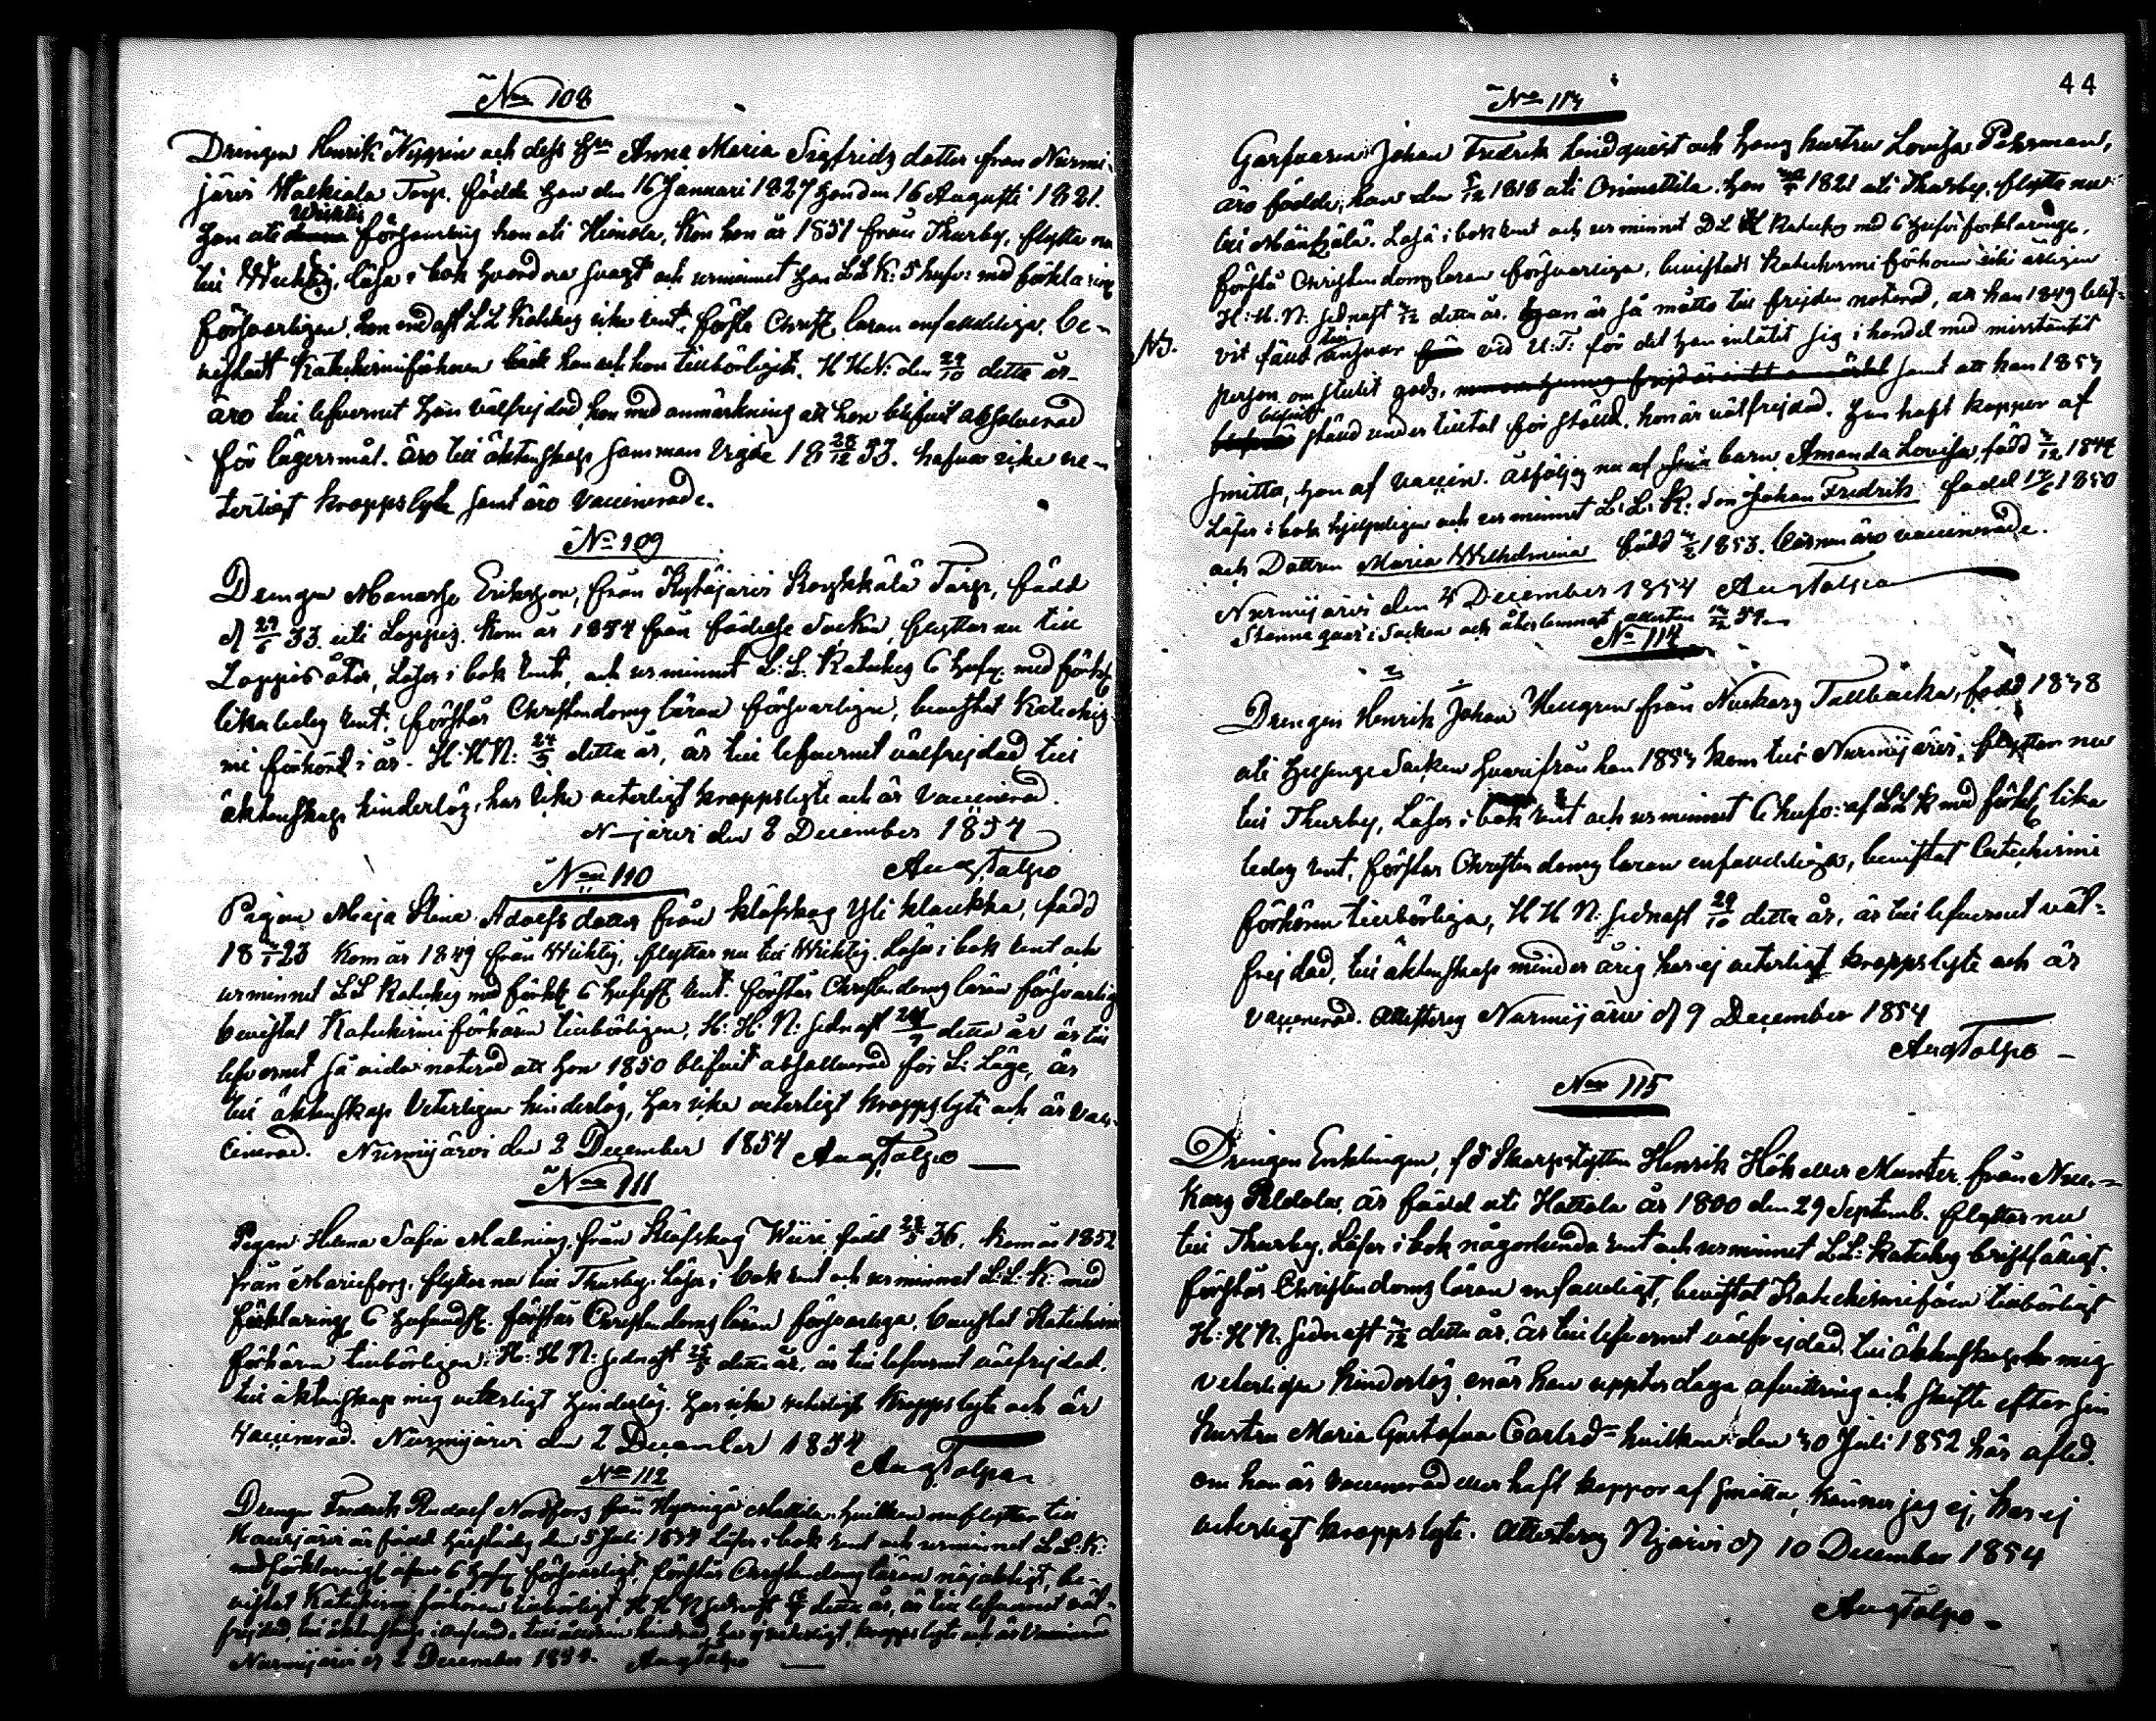 No 108
Drengen Henrik Nygrén och dess Hu Anna Maria Sigfrids dotter från Nurmi-
järvi Torp. födde han den 16 Januari 1827 hon den 16 Augusti 1821.
Wichtis
han uti församling hon uti Kom hon år 1851 från Thusby, flytta nu
till Wichtis, läsa i bok hvardera svagt och ur minnet han L L K: 5 hufv: med förklaring
försvarligen, hon endast L L Kateches icke rent, förstå Christ. läran enfaldeliga, be-
vistadt Katechismiförhören både han och hon tillbörligtt. H H N: den 29/10 detta år
äro till lefvernet han välfrejdad, hon med anmärkning att hon blifvit absolverad
för lägersmål. äro till äktenskap samman vigde 18 28/12 53. hafva icke ve-
terligt kroppslyte samt äro vaccinerade.
No 109
Drengen Manasse Eriksson, från Kytäjärvi Torp, född
d 29/6 33. uti Loppis. Kom år 1854 från födelse Socken, flyttar nu till
Loppis åter, Läser i bok rent, och ur minnet L: L. Kateches 6 hufs. med förkl.
likaledes rent. förstår Christendoms läran försvarligen, bevistat Kateches-
mi förhör i år. H: H N: 24/9 detta år, är till lefvernet välfrejdad till
äktenskap hinderlös, har icke veterligt kroppslyte och är vaccinerad.
N-järvi den 2 December 1854
Aug Talpo
No 110
Pigan Maja Stina Adolfs dotter från Klöfskog Yli Klaukka, född
18 23 Kom år 1849 från Wichtis, flyttar nu till Wichtis. Läser i bok rent och
ur minnet L L Kateches med förkl. 6 hufst. rent. förstår Christendoms läran försvarlig
bevistat Katechismi förhören tillbörligen, H: H: N: sednast detta år är till
lefvernet så vida noterad att hon 1850 blifvit absolverad för L: Läge, är
till äktenskap veterligen hinderlös, har icke veterligt kroppslyte och är vac-
cinerad. Nurmijärvi den 2 December 1854 Aug Talpo
No 111
Pigan Helena Sofia Malenius från Klöfskog född 36. Kom år 1852
från flyttar nu till Thusby. Läser i bok rent och ur minnet L: L: K: med
förklaring 6 hufvudst. förstår Christendoms läran försvarliga, bevistat Katechismi
förhören tillbörligen. H: H N: sednast detta år, är till lefvernet välfrejdad,
till äktenskap mig veterligt hinderlös. har icke veterligt kroppslyte och är
vaccinerad. Nurmijärvi den 2 December 1854
Aug Talpo
No 112
Drengen Fredrik Rudolf Nordfors från Hyvingä hvilken nu flyttar till
är född härstädes den 5 Juli 1834 Läser i bok rent och ur minnet L L: K:
med förklaring 6 försvarligt, förstår Christendoms läran nöjaktigt, be-
vistat Katechismi förhören tillbörligt H H N sednast detta år, är till lefvernet väl-
frejdad, till äktenskap har ej veterligt kroppslyte och är vaccinerad
Nurmijärvi d 2 December 1854. Aug Talpo
44
No 113
Garfvaren Johan Fredrik Lindquist och hans hustru Lovisa Pehrman,
äro födde, han den 1818 uti Orimattila. hon 1821 uti Thusby. flytta nu
till Mäntsälä. Läsa i bok rent och ur minnet D L K Kateches med 6 hufv förklaringe.
förstå Christendoms läran försvarliga, bevistadt Katechismi förhören icke årligen
H: H: N: sednast detta år. han är så måtto till frejden noterad, att han 1849 blif-
NB. vit fäld till ansvar vid U: T: för det han inlåtit sig i handel med misstänkt
person om stulit gods, samt att han 1853
blifvit
ständ under tilltal för stöld. hon är välfrejdad. han haft koppor af
smitta, hon af vaccin. åtföljes nu af barn Amanda Lovisa, född 1844
Läser i bok hjelpeligen och ur minnet L: L: K: Son Johan Fredrik född 1850
och Dottren Maria Wilhelmina född 1853. barnen äro vaccinerade.
Nurmijärvi den 4 December 1854 Aug Talpo
Stanna qvar i Socken och återlemnat attesten
No 114
Drengen Henrik Johan från Nuckars Tallbacka, född 1838
uti Helsinge Socken hvarifrån han 1853 kom till Nurmijärvi, flyttar nu
till Thusby, Läser i bok rent och ur minnet 6 hufv: af L L K med förkl lika
ledes rent, förstår Christendoms läran enfaldeligen, bevistat Catechismi
förhören tillbörliga, H H N: sednast 29/10 detta år, är till lefvernet väl-
frejdad, till äktenskap minder årig har ej veterligt kroppslyte och är
vaccinerad. Attesteras Nurmijärvi d 9 December 1854
Aug Talpo
No 115
Drengen Enklingen, f d Skarpskytten Henrik Hök eller Munter från Nuc-
kars Peldola, är född uti Hattula år 1800 den 29 Septemb. flyttar nu
till Thusby. Läser i bok någorlunda rent och ur minnet L L: Kateches bristfälligt.
förstår Christendoms läran enfaldigt, bevistat Katechismiförn tillbörligt
H: H N: sednast detta år. är till lefvernet välfrejdad, till äktenskap mig
veterligen hinderlös, enär han upptes laga afvittring och skifte efter sin
hustru Maria Gustafva Carlsd= hvilken den 30 Juli 1852 här afled.
om han är vaccinerad eller haft koppor af smitta, känner jag ej, har ej
veterligt kroppslyte. Attesteras Njärvi d 10 December 1854
Aug Talpo